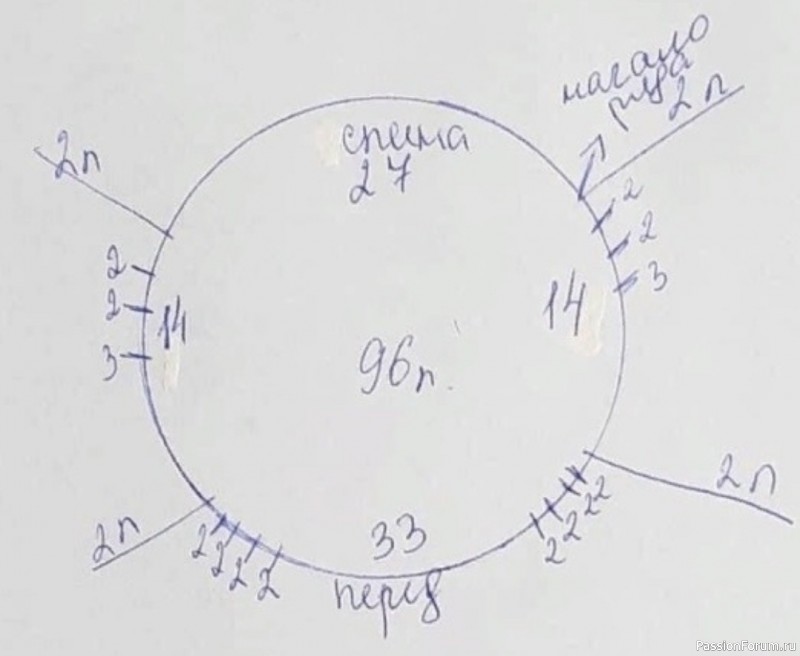 начало
ряда
2п
спинка
27
2п
2
2
3
2
2
3
14
14
96п.
2п
2п
2
2
2
2
2
2
2
2
33
перед
PassionForum.ru